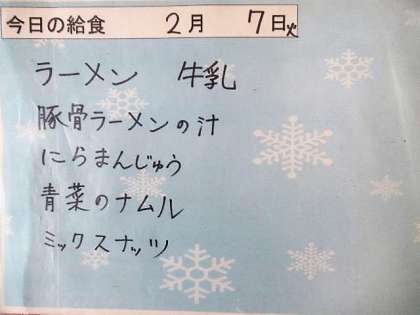 今日の給食 2月 7日火
ラーメン 牛乳
豚骨ラーメンの汁
にらまんじゅう
青菜のナムル
ミックスナッツ